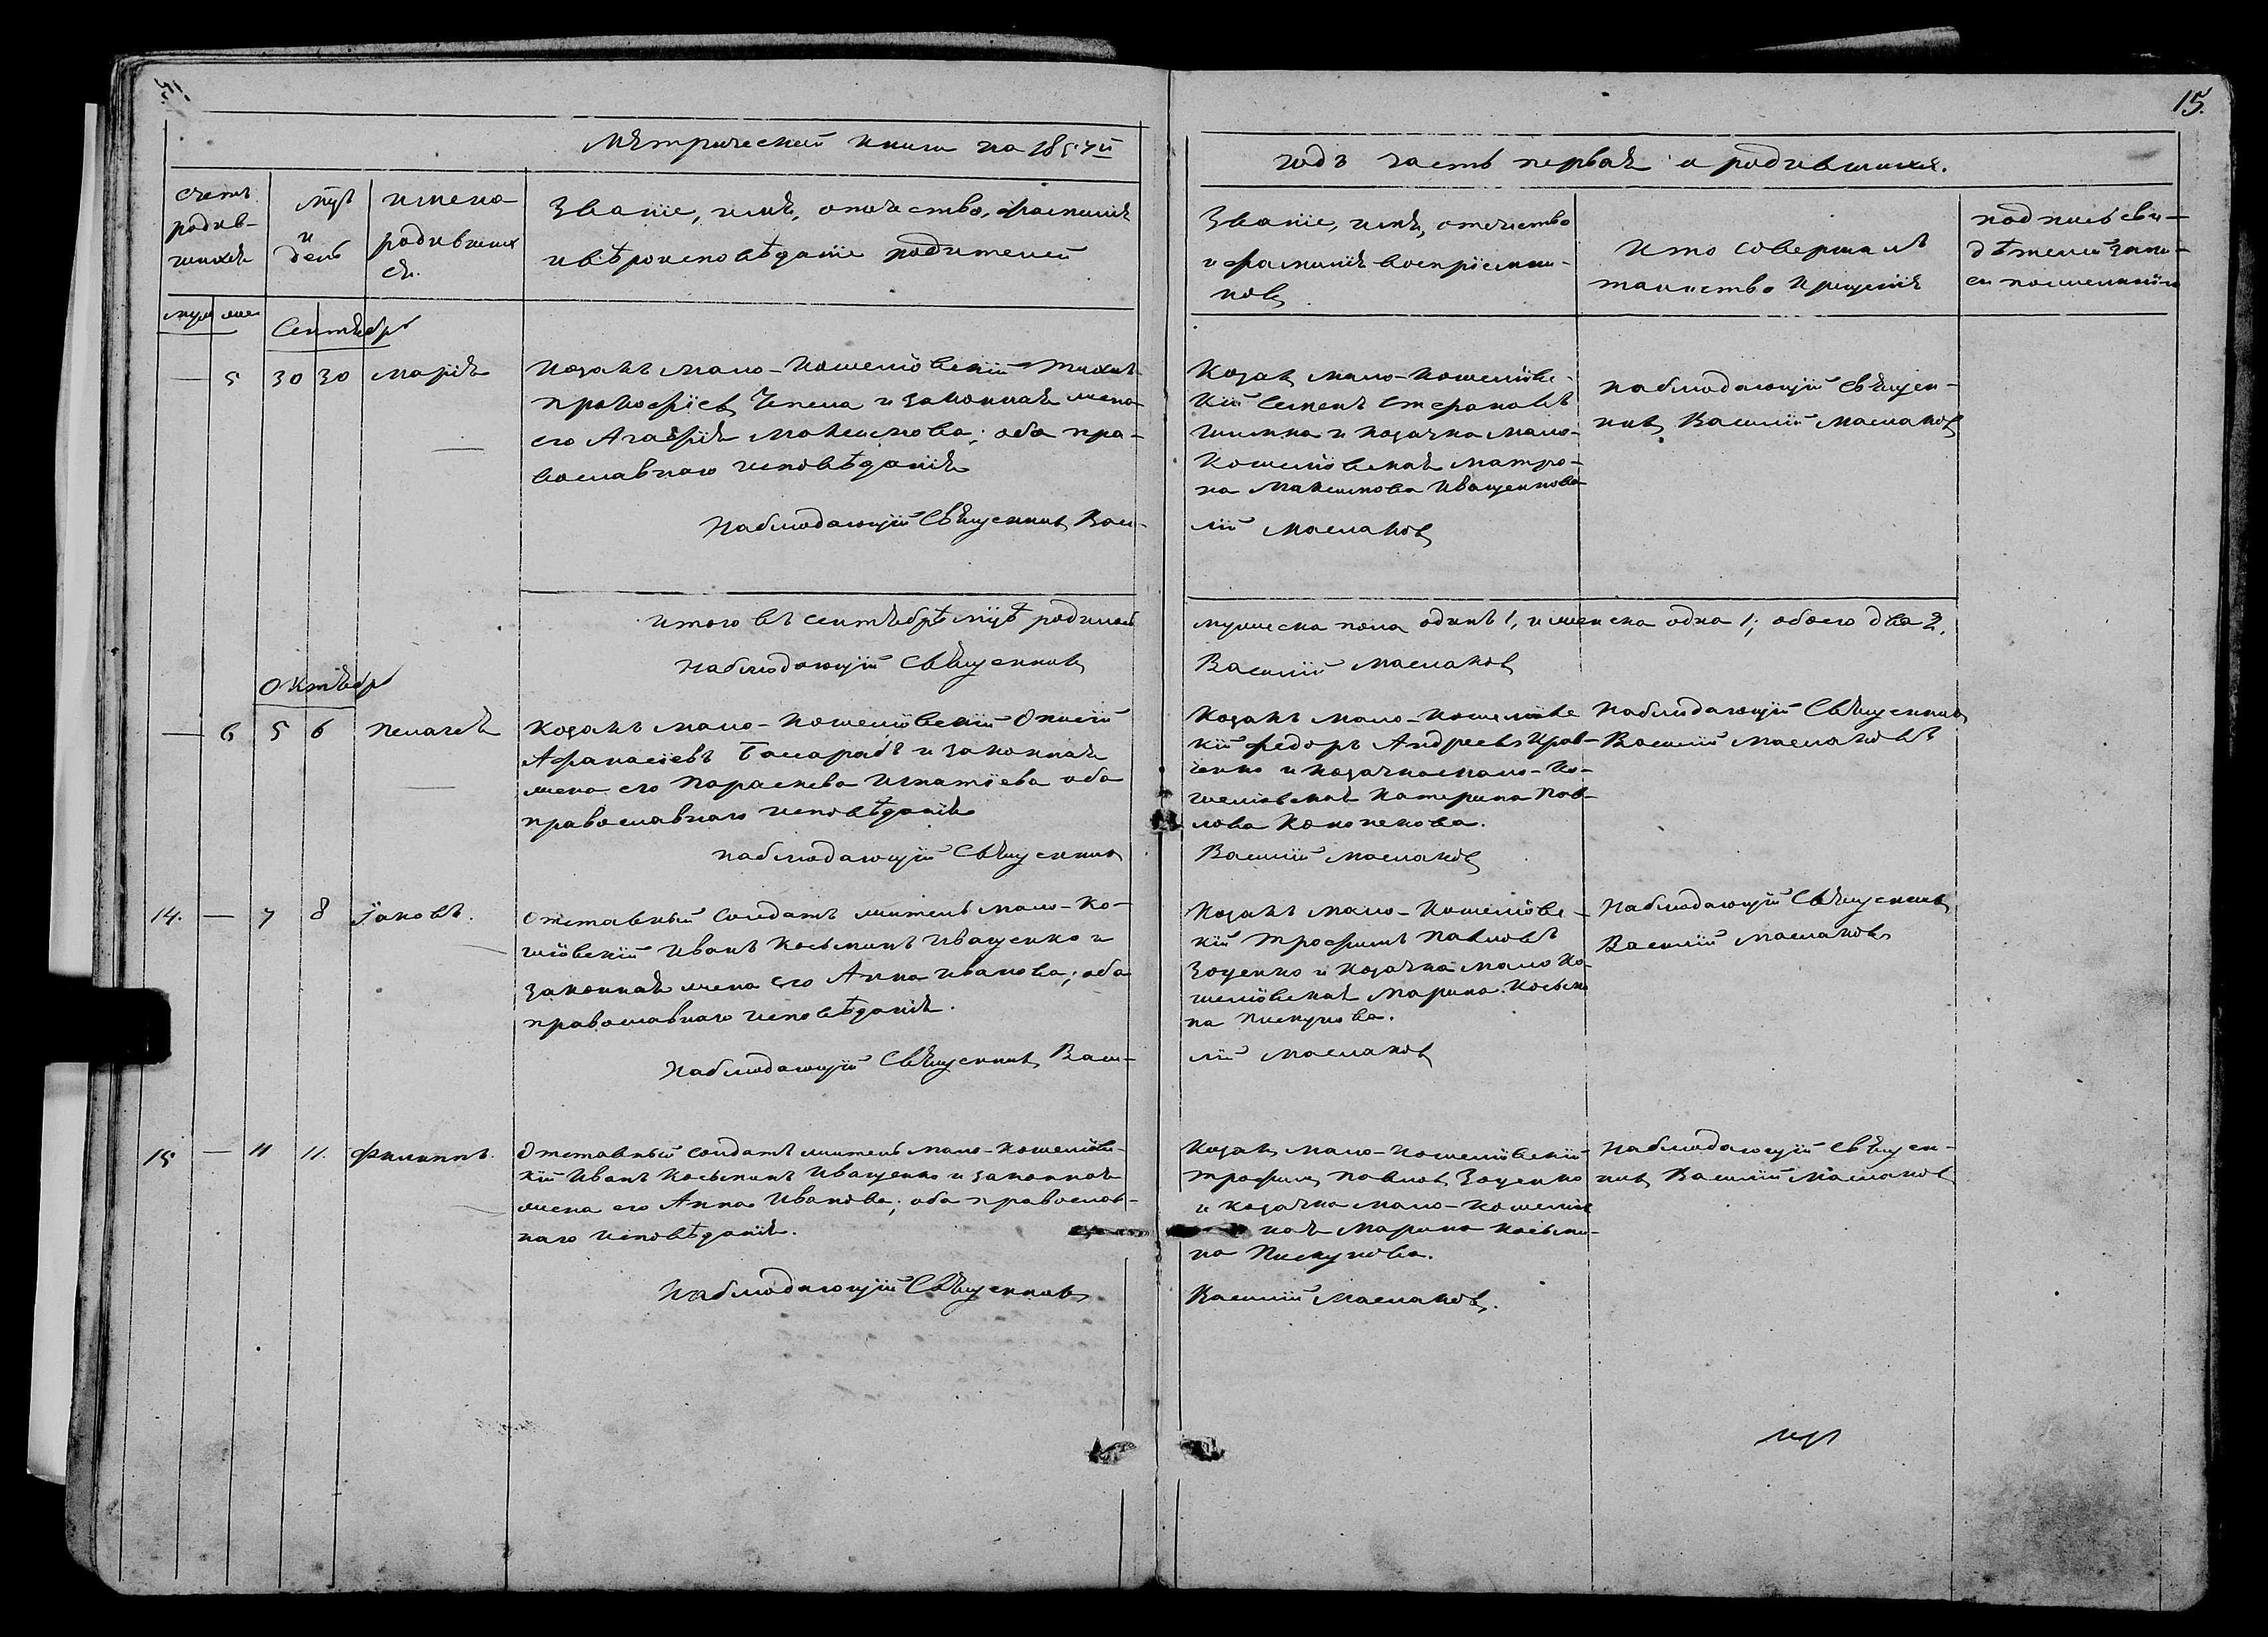 15.
Метрической книги на 1857й
годъ часть первая о родившихся.
счетъ родив-шихся
мцъ и день
имена родившихся.
Званіе, имя, отечество, фамилия
и вѣроисповѣданіе родителей
Званіе, имя, отечество
и фамилия воспріемни-
ковъ
Кто совершалъ
таинство крещенія
подпись сви-
дѣтелей запи-
си по желанію
муж жен
Сентябрь
— 5 30 30 Марія
Козакъ Мало-Кошелювскій Тихонъ
Прокофіевъ Чепела и законная жена
его Агафія Максимова; оба пра-
вославнаго исповѣданія
Наблюдающій Священникъ Васи-
Козакъ Мало-Кошелювс-
кій Семенъ Стефановъ
и козачка Мало-
Кошелювская Матро-
на Максимова Иващенкова
лій Маслаковъ
Наблюдающій Священ-
никъ Василій Маслаковъ
Итого въ Сентябрѣ мцѣ родилось
мужеска пола одинъ 1, и женска одна 1; обоего два 2.
Наблюдающій Священникъ
Василій Маслаковъ
Октябрь
— 6 5 6 Пелагея
Козакъ Мало-Кошелювскій
Афанасіевъ и законная
жена его Параскева Игнатіева оба
православнаго исповѣданія
Наблюдающій Священникъ
Козакъ Мало-Кошелювс
кій Федоръ Андреевъ Крав-
ченко и козачка Мало-Ко-
шелювская Катерина Пав-
лова Кононекова.
Василій Маслаковъ
Наблюдающій Священникъ
Василій Маслаковъ
14. — 7 8 Іаковъ.
Отставный солдатъ житель Мало-Ко-
шовскій Иванъ Косьминъ Иващенко и
законная жена его Анна Иванова; оба
православнаго исповѣданія.
Наблюдающій Священникъ Васи-
Козакъ Мало-Кошелювс-
кій Трофимъ Павловъ
Зоценко и козачка Мало Ко-
шелювская Марина Косьми
на Пискунова.
лій Маслаковъ
Наблюдающій Священникъ
Василій Маслаковъ
15 — 11 11. Филиппъ.
Отставный солдатъ житель Мало-Кошелювс-
кій Иванъ Косьминъ Иващенко и законная
жена его Анна Иванова; оба православ-
наго исповѣданія.
Наблюдающій Священникъ
Козакъ Мало-Кошелювскій
Трофимъ Павловъ Зоценко
и козачка Мало-Кошелюв
кая Марина Косьми-
на Пискунова.
Василій Маслаковъ.
Наблюдающій Священ-
никъ Василій Маслаковъ